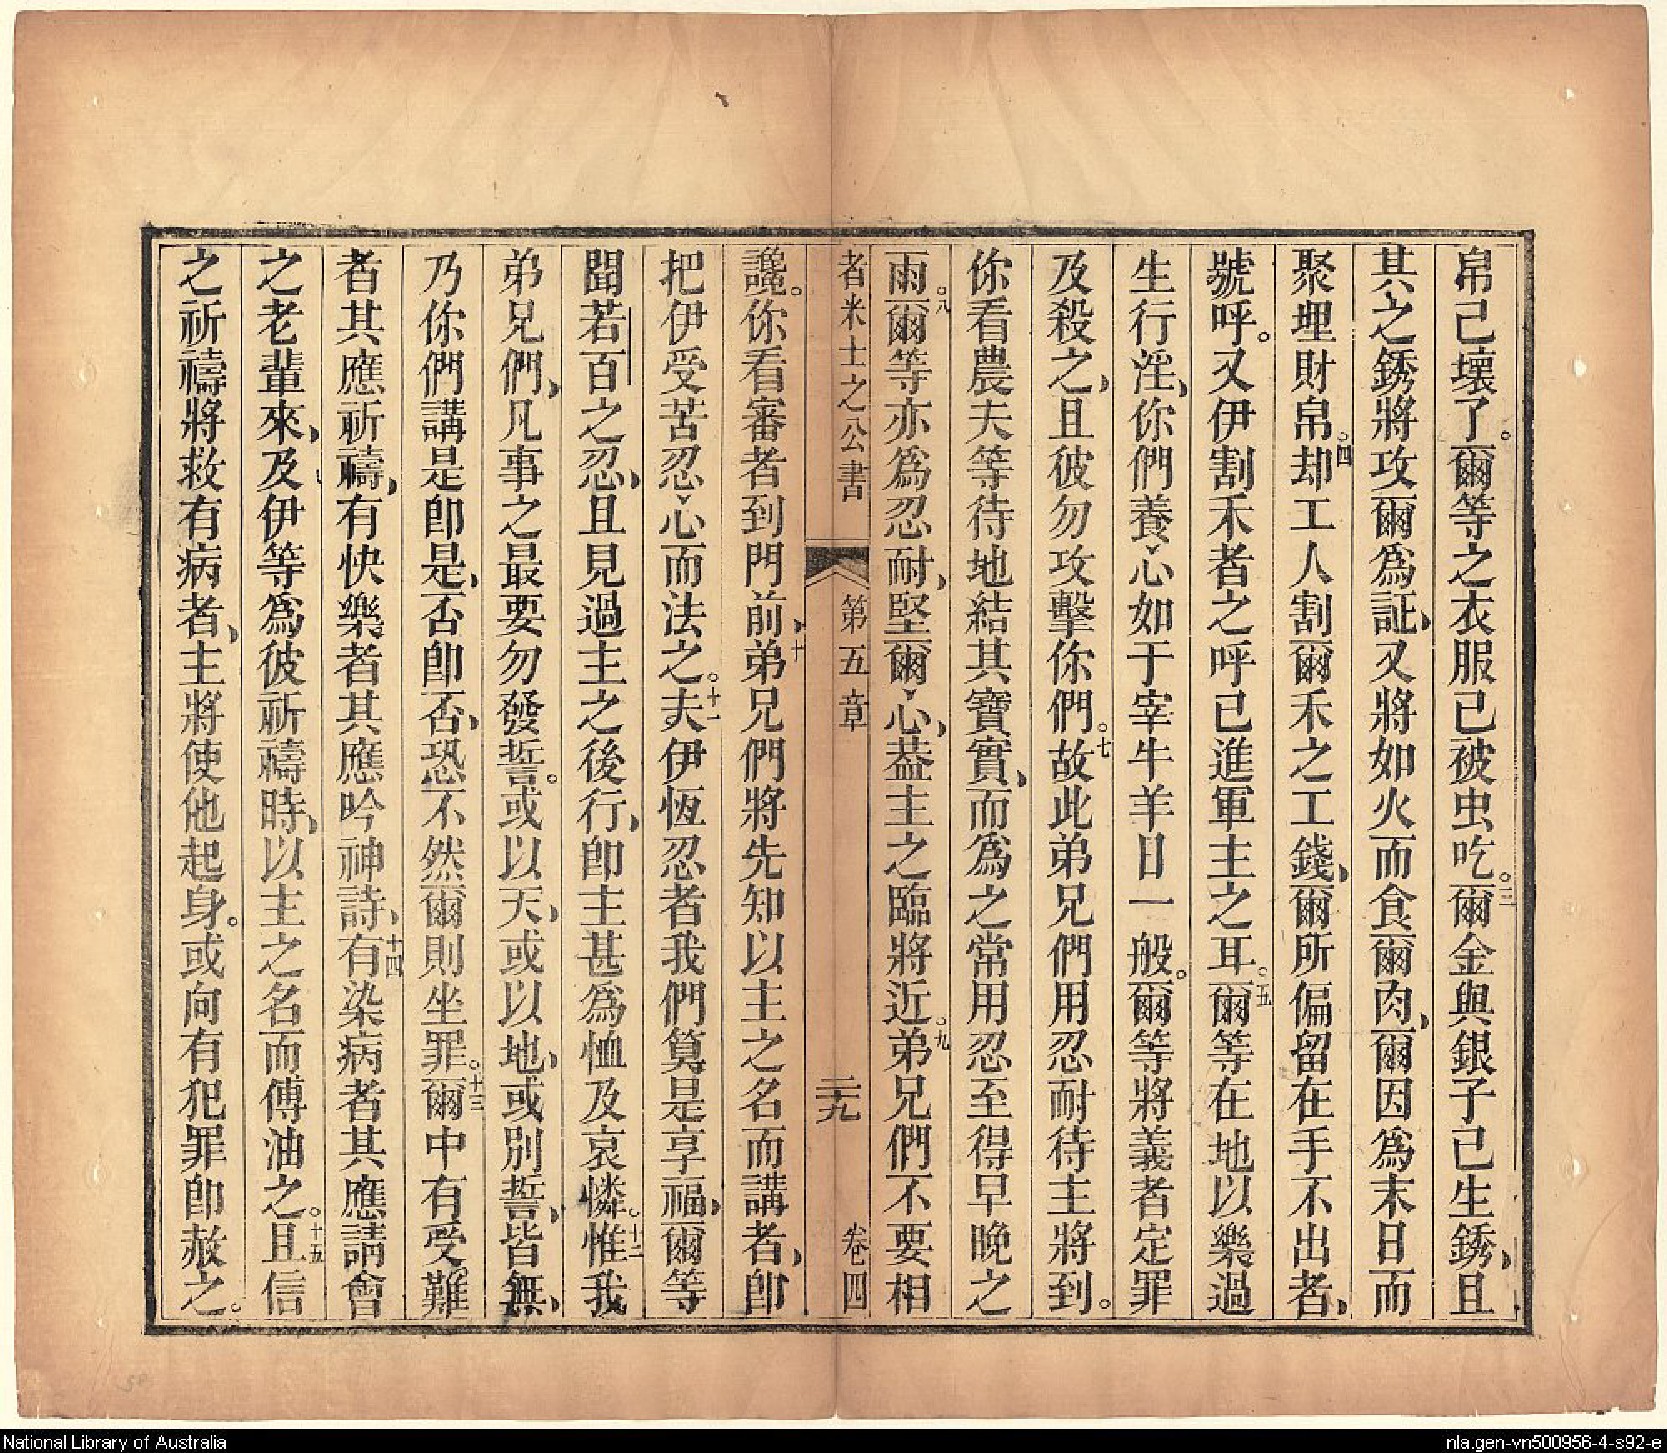 帛己壞了。爾等之衣服己被虫吃。三爾金與銀子己生銹、且
其之銹將攻爾爲証、又將如火而食爾肉、爾因爲末日而
聚埋財帛。四却工人割爾禾之工錢、爾所偏留在手不出者、
號呼。又伊割禾者之呼己進軍主之耳。五爾等在地以樂過
生行淫、你們養心如于宰牛羊日一般。爾等將義者定罪
及殺之、且彼勿攻擊你們。七故此弟兄們用忍耐待主將到。
你看農夫等待地結其寶實、而爲之常用忍至得早晚之
雨。八爾等亦爲忍耐、堅爾心、葢主之臨將近。九弟兄們不要相
者米士之公書 第五章 二十九 卷四
讒。你看審者到門前、十弟兄們將先知以主之名而講者、卽
把伊受苦忍心而法之。十一夫伊恆忍者我們算是享福、爾等
聞若百之忍、且見過主之後行、卽主甚爲恤及哀憐。十二惟我
弟兄們、凡事之最要勿發誓。或以天、或以地、或別誓、皆無、
乃你們講是卽是、否卽否、恐不然爾則坐罪。十三爾中有受難
者其應祈禱、有快樂者其應吟神詩、十四有染病者其應請會
之老輩來、及伊等爲彼祈禱時、以主之名而傅油之。十五且信
之祈禱將救有病者、主將使他起身。或向有犯罪卽赦之。
National Library of Australia
nla.gen-vn500956-4-s92-e